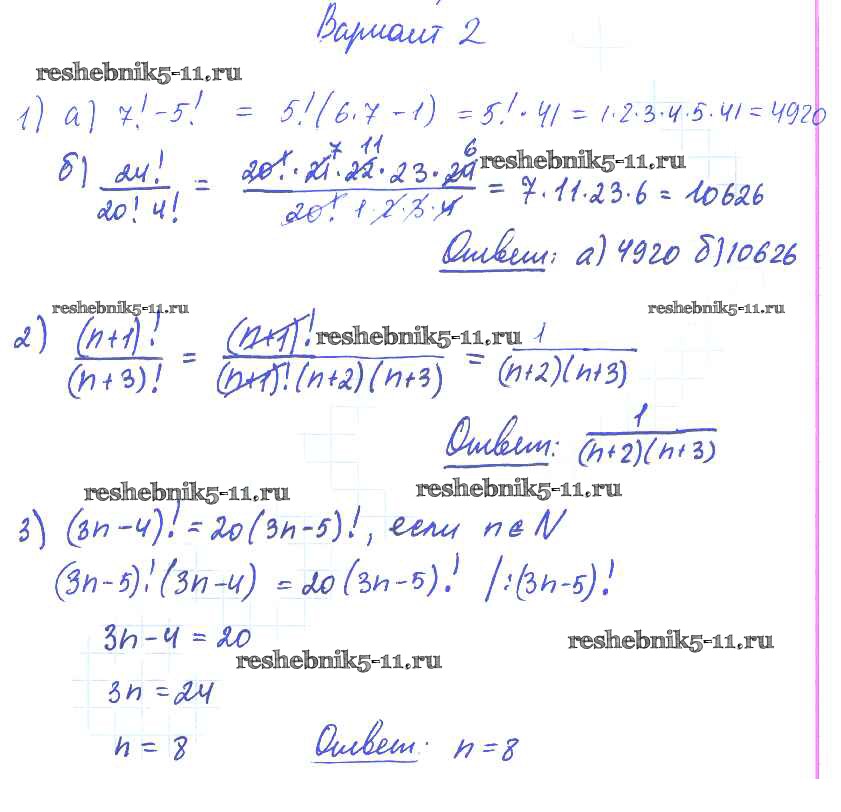 Вариант 2
reshebnik5-11.ru
1) а) 7! - 5! = 5! (6·7 - 1) = 5! · 41 = 1·2·3·4·5·41 = 4920
7 11 6 reshebnik5-11.ru
б) 24! / 20! 4! = 20! · 21 · 22 · 23 · 24 / 20! 1·2·3·4 = 7·11·23·6 = 10626
Ответ: а) 4920 б) 10626
reshebnik5-11.ru reshebnik5-11.ru
2) (n+1)! / (n+3)! = (n+1)! / (n+1)! (n+2)(n+3) = 1 / (n+2)(n+3)
reshebnik5-11.ru
Ответ: 1 / (n+2)(n+3)
reshebnik5-11.ru reshebnik5-11.ru
3) (3n-4)! = 20(3n-5)!, если n ∈ N
(3n-5)! (3n-4) = 20(3n-5)! |:(3n-5)!
3n - 4 = 20
reshebnik5-11.ru reshebnik5-11.ru
3n = 24
n = 8 Ответ: n = 8